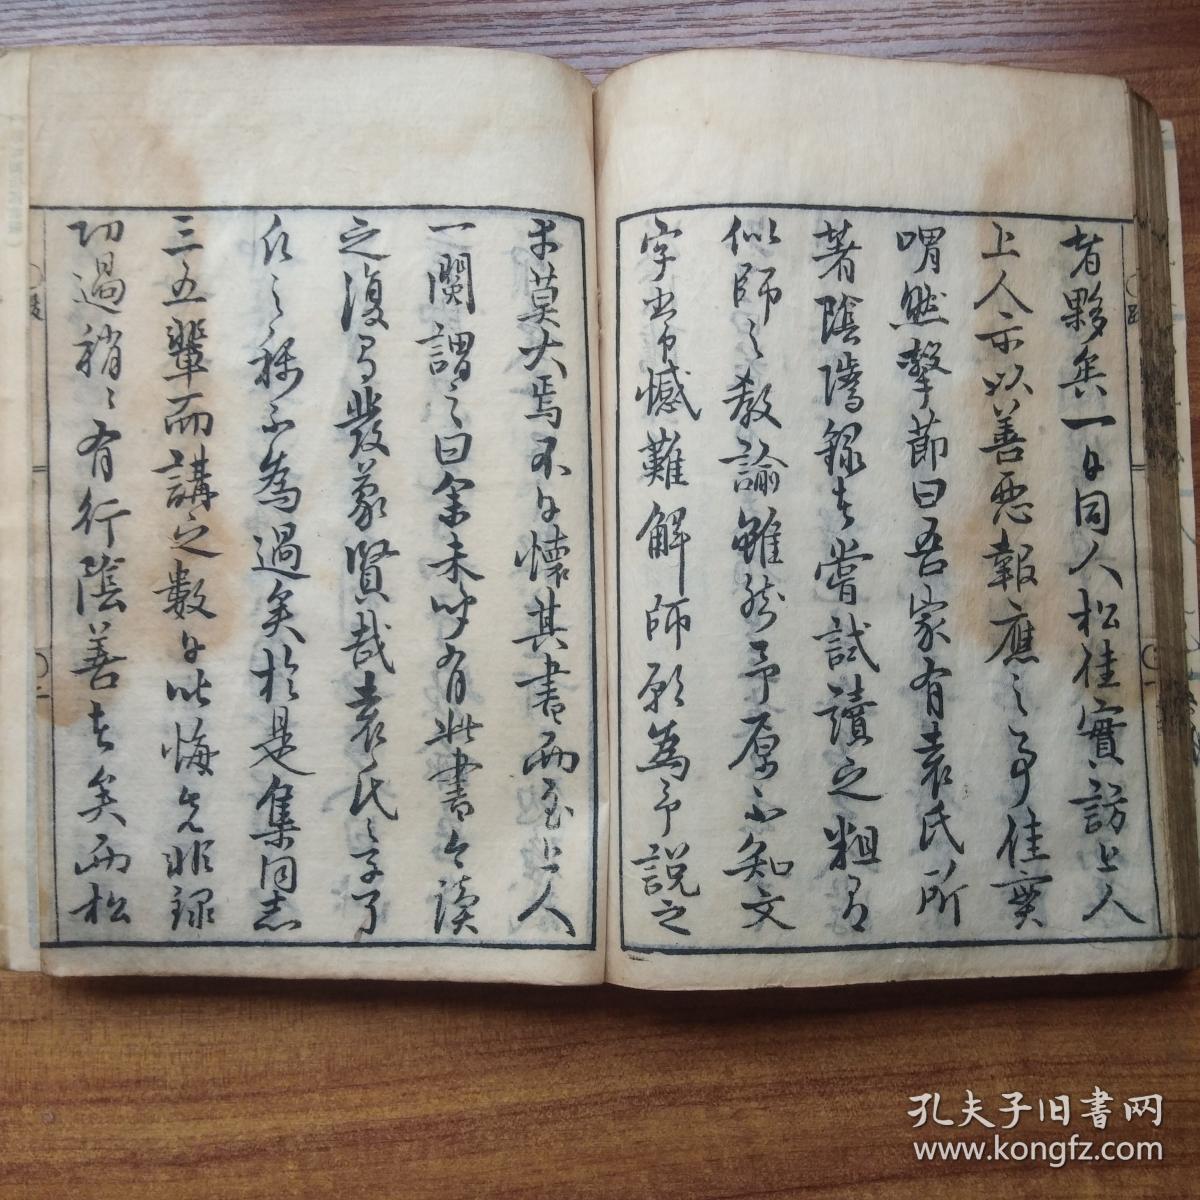 者夥矣一日同人松佳實訪上人
上人示以善惡報應之事佳實
喟然擊節曰吾家有袁氏所
著陰隲錄者嘗試讀之粗有
似師之教諭雖然予原不知文
字
憾難解師願為予說之
莫大焉不日懷其書而至上人
一閱謂之曰余未
有此書今讀
之復有
發蒙賢哉袁氏之言
之
不為過矣於是集同志
三五輩而講之數日
悔先非錄
功過稍稍有行陰善者矣而松
孔夫子旧书网
www.kongfz.com